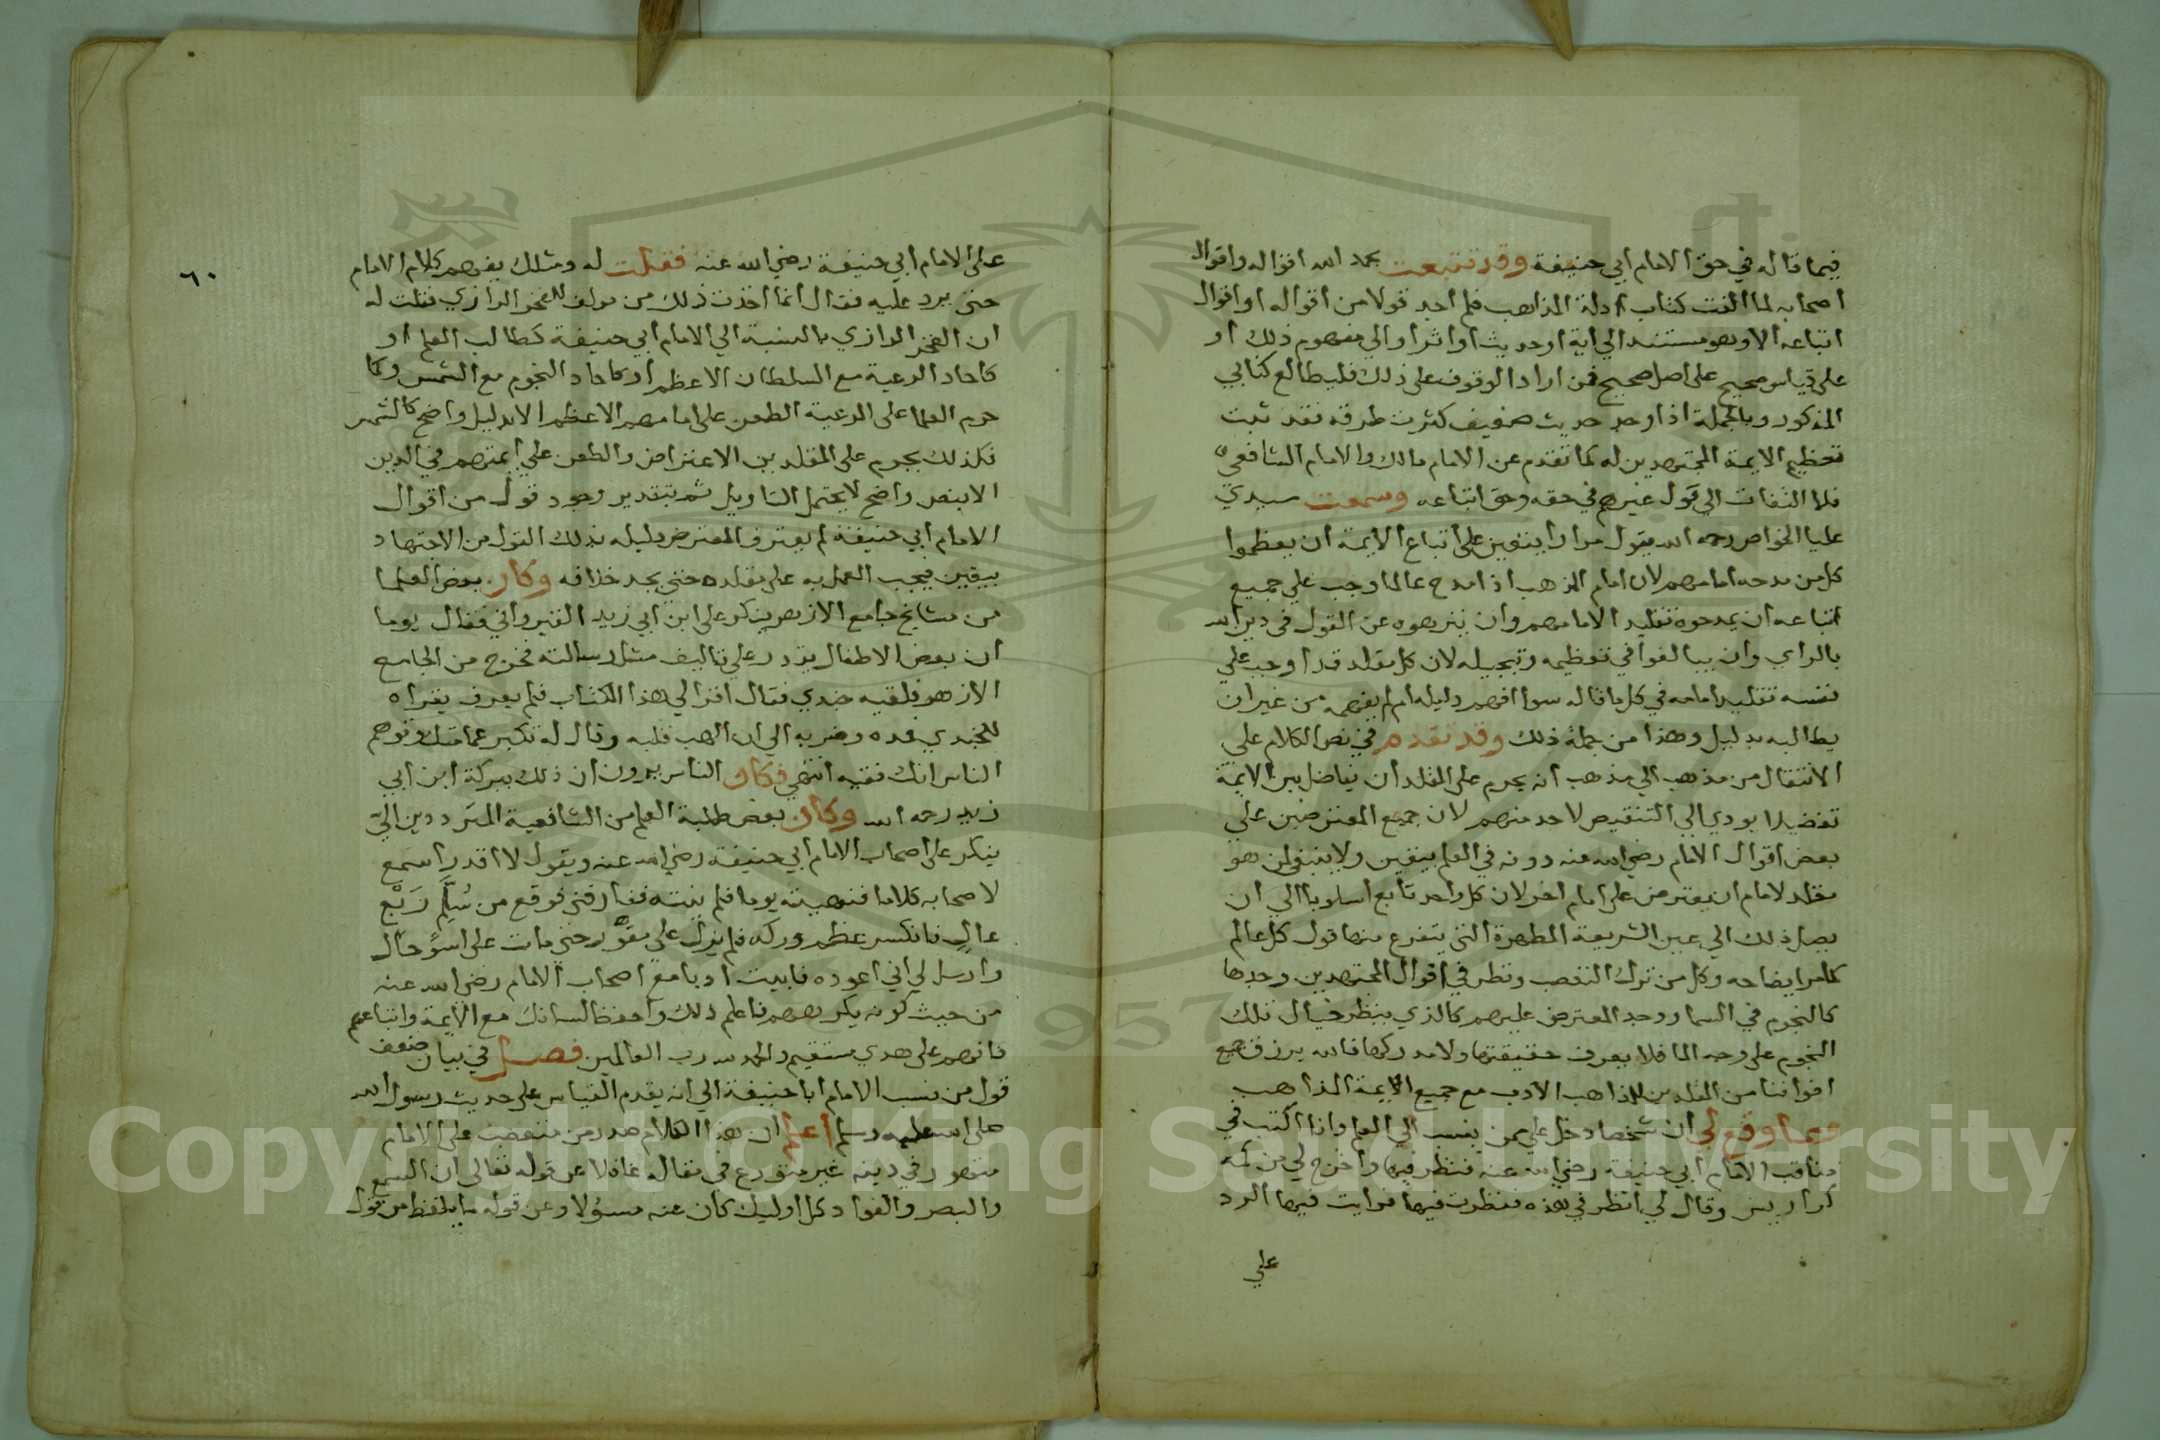 فيما قاله في حق الامام ابي حنيفة وقد تتبعت بحمد الله اقواله واقوال
اصحابه لما الفت كتاب ادلة المذاهب فلم اجد قولا من اقواله او اقوال
اتباعه الا وهو مستند الي اية او حديث او اثر او الي مفهوم ذلك او
علي قياس صحيح علي اصل صحيح فمن اراد الوقوف علي ذلك فليطالع كتابي
المذكور وبالجملة اذا وجد حديث ضعيف كثرت طرقه فقد ثبت
تعظيم الايمة المجتهدين له كما تقدم عن الامام مالك والامام الشافعي
فلا التفات الي قول غيرهم في حقه وحق اتباعه وسمعت سيدي
عليا الخواص رحمه الله يقول مرارا يتعين علي اتباع الايمة ان يعظموا
كل من مدحه امامهم لان امام المذهب اذا مدح عالما وجب علي جميع
اتباعه ان يمدحوه تقليدا لامامهم وان ينزهوه عن القول في دين الله
بالراي وان يبالغوا في تعظيمه وتبجيله لان كل مقلد قد اوجب علي
نفسه تقليد امامه في كل ما قاله سوا افهم دليله ام لم يفهمه من غير ان
يطالبه بدليل وهذا من جملة ذلك وقد تقدم في نص الكلام علي
الانتقال من مذهب الي مذهب انه يحرم علي المقلد ان يفاضل بين الايمة
تفضيلا يودي الي التنقيص لاحد منهم لان جميع المعترضين علي
بعض اقوال الامام رضي الله عنه دونه في العلم بيقين ولا ينبغي لمن هو
مقلد لامام ان يعترض علي امام اخر لان كل واحد تابع اسلوبا الي ان
يصل ذلك الي عين الشريعة المطهرة التي يتفرع منها قول كل عالم
كما مر ايضاحه وكل من ترك التعصب ونظر في اقوال المجتهدين وجدها
كالنجوم في السما ووجد المعترض عليهم كالذي ينظر خيال تلك
النجوم علي وجه الما فلا يعرف حقيقتها ولا مدركها فالله يرزق جميع
اخواننا من المقلدين للمذاهب الادب مع جميع ائمة المذاهب
ومما وقع لي ان شخصا دخل علي ممن ينسب الي العلم وانا اكتب في
مناقب الامام ابي حنيفة رضي الله عنه فنظر فيها واخرج لي من كمه
كراريس وقال لي انظر في هذه فنظرت فيها فرايت فيها الرد
علي
٦٠
علي الامام ابي حنيفة رضي الله عنه فقلت له ومثلك يفهم كلام الامام
حتي يرد عليه فقال انما اخذت ذلك من مولف للفخر الرازي فقلت له
ان الفخر الرازي بالنسبة الي الامام ابي حنيفة كطالب العلم او
كاحاد الرعية مع السلطان الاعظم او كاحاد النجوم مع الشمس وكما
حرم العلما علي الرعية الطعن علي امامهم الاعظم الا بدليل واضح كالشمس
فكذلك يحرم علي المقلدين الاعتراض والطعن علي ايمتهم في الدين
الا بنص واضح لا يحتمل التاويل ثم بتقدير وجود قول من اقوال
الامام ابي حنيفة لم يعرف المعترض دليله فذلك القول من الاجتهاد
بيقين فيجب العمل به علي مقلده حتي يجد خلافه وكان بعض العلما
من مشايخ جامع الازهر ينكر علي ابن ابي زيد القيرواني فقال يوما
ان بعض الاطفال يقدر علي تاليف مثل رسالته فخرج من الجامع
الازهر فلقيه جندي فقال اقرا لي هذا الكتاب فلم يعرف يقراه
للجندي فمده وضربه الي ان الهب قلبه وقال له تكبر عمامتك وتوهم
الناس انك فقيه انتهي فكان الناس يرون ان ذلك ببركة ابن ابي
زيد رحمه الله وكان بعض طلبة العلم من الشافعية المترددين الي
ينكر علي اصحاب الامام ابي حنيفة رضي الله عنه ويقول لا اقدر اسمع
لاصحابه كلاما فنهيته يوما فلم ينته ففارقني فوقع من سُلَّمِ رَبْعٍ
عالٍ فانكسر عظم وركه فلم يزل علي حتي مات علي اسوء حال
وارسل لي اني اعوده فابيت ادبا مع اصحاب الامام رضي الله عنه
من حيث كونه يكرههم فاعلم ذلك واحفظ لسانك مع الايمة واتباعهم
فانهم علي هدي مستقيم والحمد لله رب العالمين فصل في بيان ضعف
قول من نسب الامام ابا حنيفة الي انه يقدم القياس علي حديث رسول الله
صلي الله عليه وسلم اعلم ان هذا الكلام صدر من متعصب علي الامام
متهور في دينه غير متورع في مقاله غافلا عن قوله تعالي ان السمع
والبصر والفواد كل اوليك كان عنه مسؤلا وعن قوله ما يلفظ من قول
Copyright © King Saud University
1957